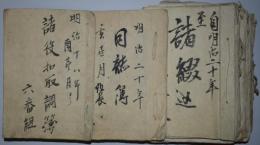 自明治二十年
至
諸綴込
明治二十年
日誌簿
明治十八年
諸役扣取調簿
六番組